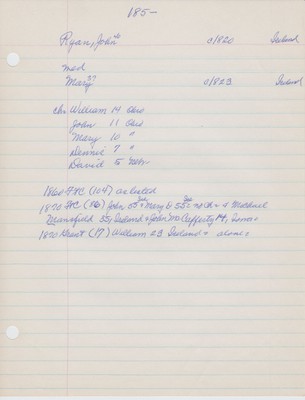 185-
Ryan, John 40 c1820 Ireland
med
Mary 37 c1823 Ireland
chn William 14
John 11
Mary 10 "
Dennis 7 "
David 5 Nebr.
1860 FVC (104) as listed
1870 FVC (86) John 55 Mary E 55 = no chn & Michael
Mansfield 35, Ireland & John McCafferty 14,
1870 (17) William 23 Ireland = alone